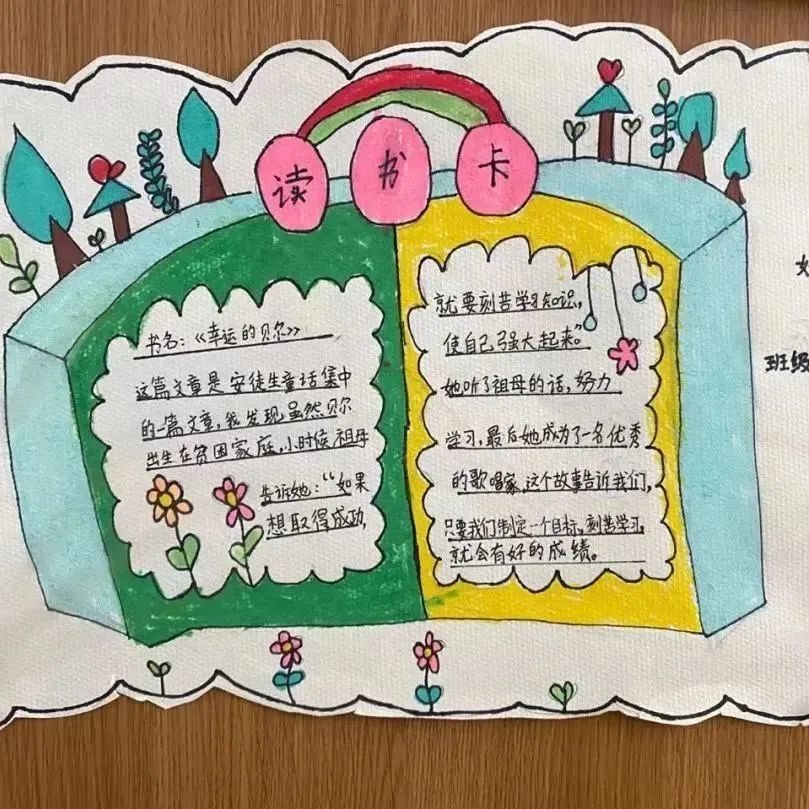 读书卡
书名：《幸运的贝尔》
这篇文章是安徒生童话集中
的一篇文章，我发现虽然贝尔
出生在贫困家庭，小时候祖母
告诉她：“如果
想取得成功，
就要刻苦学习知识，
使自己强大起来。”
她听了祖母的话，努力
学习，最后她成为了一名优秀
的歌唱家，这个故事告诉我们，
只要我们制定一个目标，刻苦学习，
就会有好的成绩。
班级